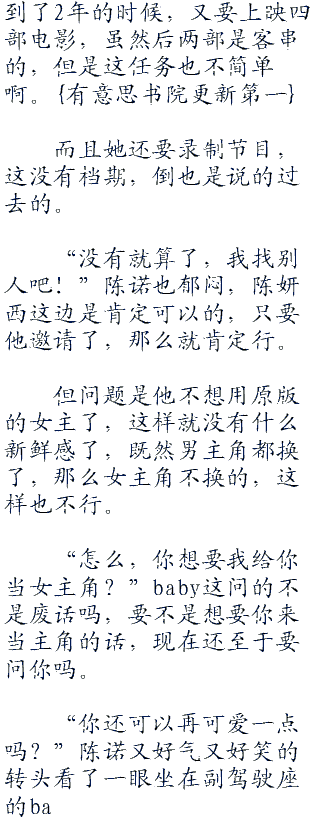 到了2年的时候，又要上映四
部电影，虽然后两部是客串
的，但是这任务也不简单
啊。{有意思书院更新第一}
而且她还要录制节目，
这没有档期，倒也是说的过
去的。
“没有就算了，我找别
人吧！”陈诺也郁闷，陈妍
西这边是肯定可以的，只要
他邀请了，那么就肯定行。
但问题是他不想用原版
的女主了，这样就没有什么
新鲜感了，既然男主角都换
了，那么女主角不换的，这
样也不行。
“怎么，你想要我给你
当女主角？”baby这问的不
是废话吗，要不是想要你来
当主角的话，现在还至于要
问你吗。
“你还可以再可爱一点
吗？”陈诺又好气又好笑的
转头看了一眼坐在副驾驶座
的ba